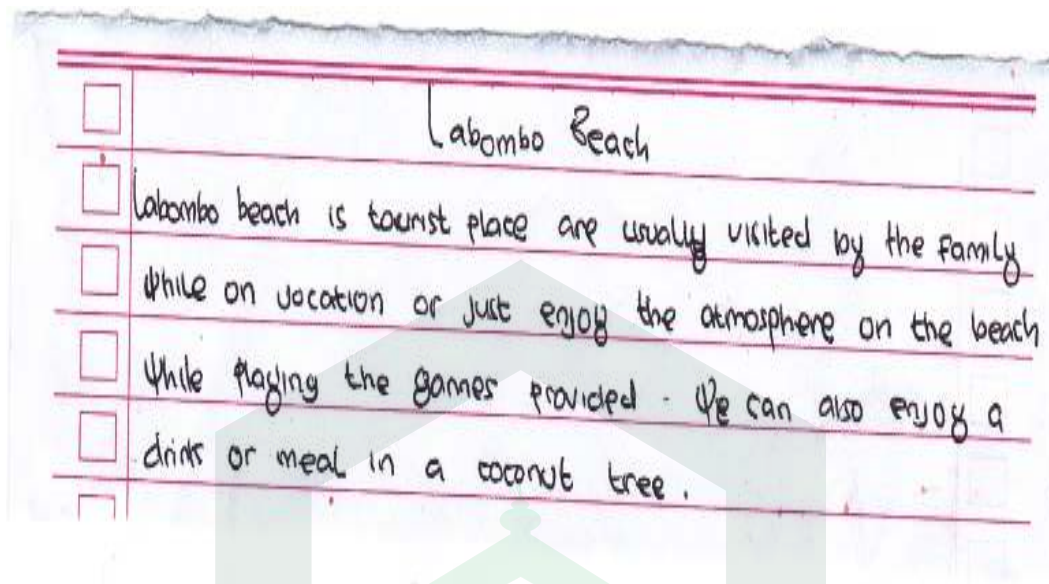 Labombo Beach
Labombo beach is tourist place are usually visited by the family
While on vocation or just enjoy the atmosphere on the beach
While playing the games provided. We can also enjoy a
drink or meal in a coconut tree.